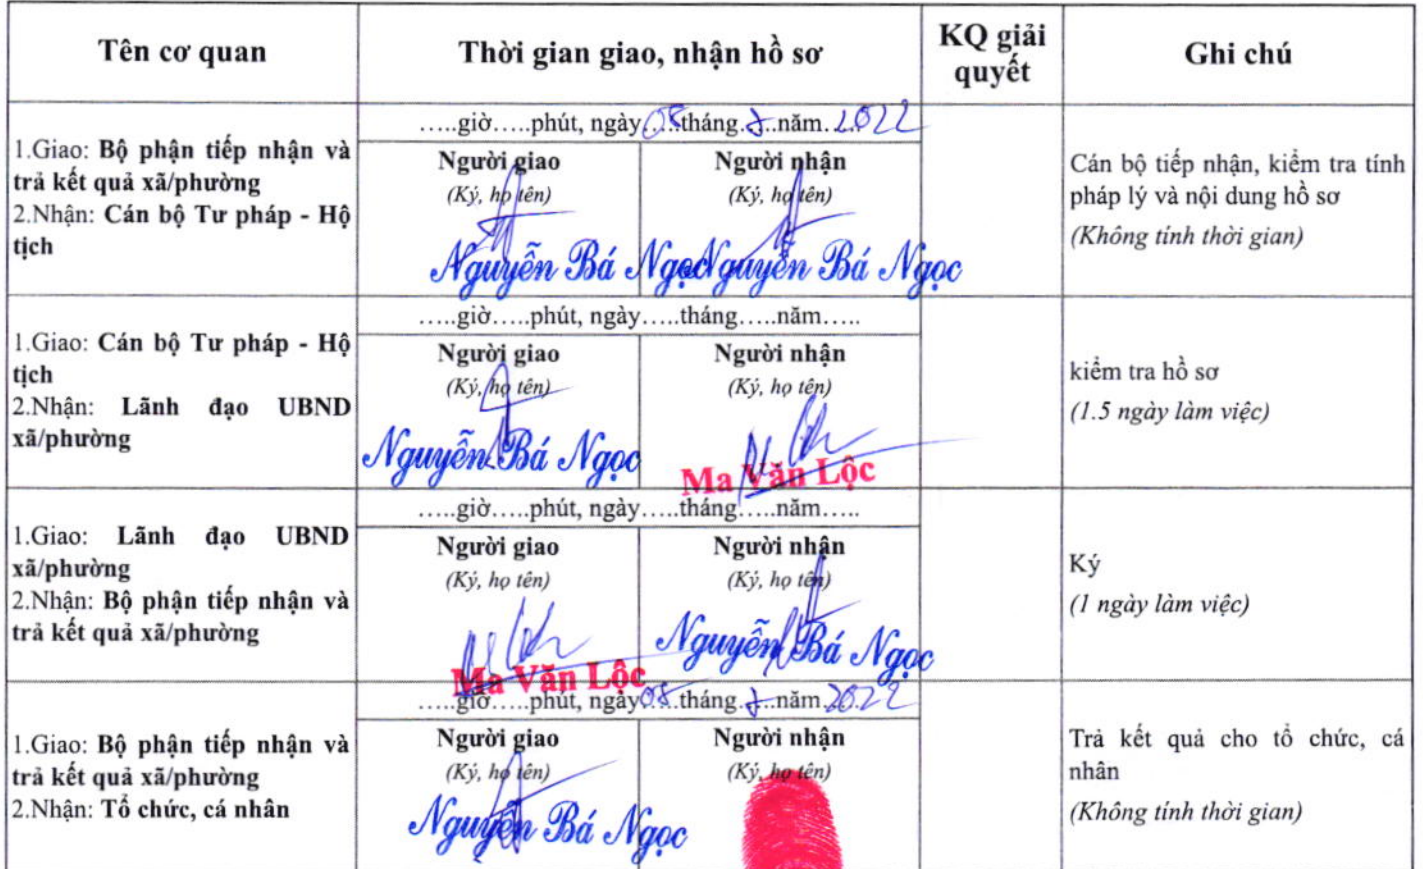 Tên cơ quan
Thời gian giao, nhận hồ sơ
KQ giải
quyết
Ghi chú
1.Giao: Bộ phận tiếp nhận và
trả kết quả xã/phường
2.Nhận: Cán bộ Tư pháp - Hộ
tịch
.....giờ.....phút, ngày 08 tháng.....năm 2022
Người giao
(Ký, họ tên)
Nguyễn Bá Ngọc
Người nhận
(Ký, họ tên)
Nguyễn Bá Ngọc
Cán bộ tiếp nhận, kiểm tra tính
pháp lý và nội dung hồ sơ
(Không tính thời gian)
1.Giao: Cán bộ Tư pháp - Hộ
tịch
2.Nhận: Lãnh đạo UBND
xã/phường
.....giờ.....phút, ngày.....tháng.....năm.....
Người giao
(Ký, họ tên)
Nguyễn Bá Ngọc
Người nhận
(Ký, họ tên)
Ma Văn Lộc
kiểm tra hồ sơ
(1.5 ngày làm việc)
1.Giao: Lãnh đạo UBND
xã/phường
2.Nhận: Bộ phận tiếp nhận và
trả kết quả xã/phường
.....giờ.....phút, ngày.....tháng.....năm.....
Người giao
(Ký, họ tên)
Ma Văn Lộc
Người nhận
(Ký, họ tên)
Nguyễn Bá Ngọc
Ký
(1 ngày làm việc)
1.Giao: Bộ phận tiếp nhận và
trả kết quả xã/phường
2.Nhận: Tổ chức, cá nhân
.....giờ.....phút, ngày 08 tháng.....năm 2022
Người giao
(Ký, họ tên)
Nguyễn Bá Ngọc
Người nhận
(Ký, họ tên)
Trả kết quả cho tổ chức, cá
nhân
(Không tính thời gian)